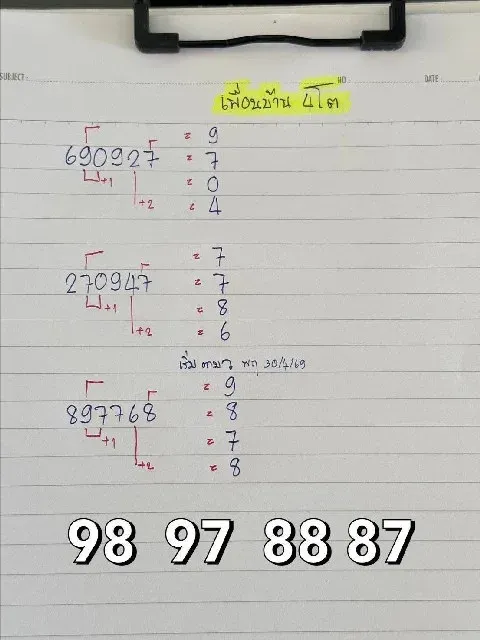 SUBJECT: NO DATE
เพื่อนบ้าน 4โต
= 9
690927 = 7
+1 = 0
+2 = 4
= 7
270947 = 7
+1 = 8
+2 = 6
เริ่ม พฤ 30/4/69
= 9
897768 = 8
+1 = 7
+2 = 8
98 97 88 87